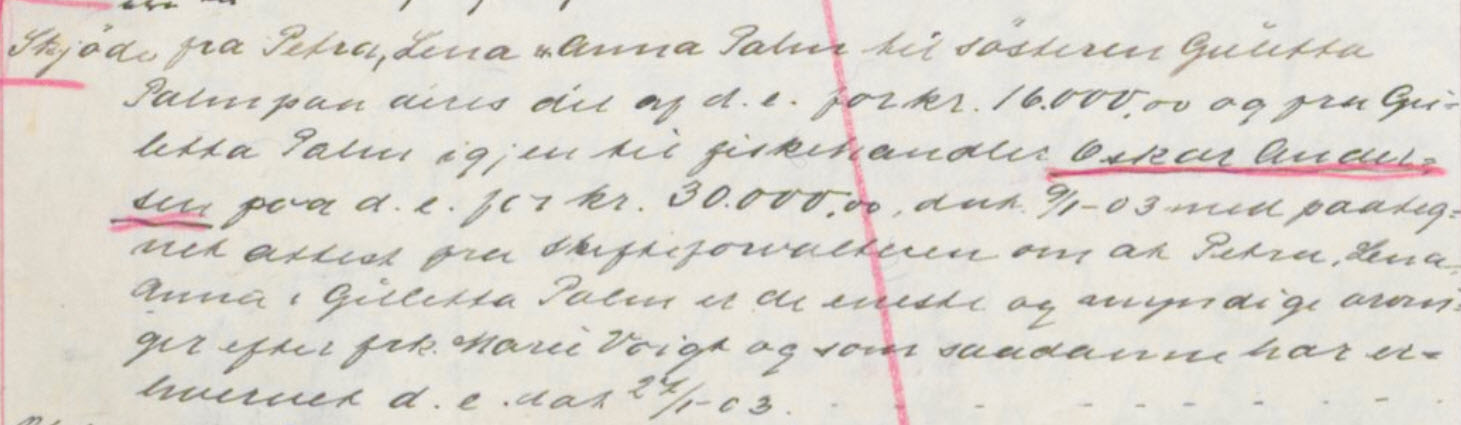 Skjöde fra Petra, Lena & Anna Palm til sösteren Gületta
Palm paa deres del af d. e. for kr. 16.000,00 og fra Gü-
letta Palm igjen til fiskehandler Oskar Ander=
sen paa d. e. for kr. 30.000,00, dat. 9/1-03 med paateg=
net attest fra skifteforvalteren om at Petra, Lena,
Anna & Gületta Palm er de eneste og myndige arvin=
ger efter frk. Marie Voigt og som saadanne har er=
hvervet d. e. dat 27/1-03.